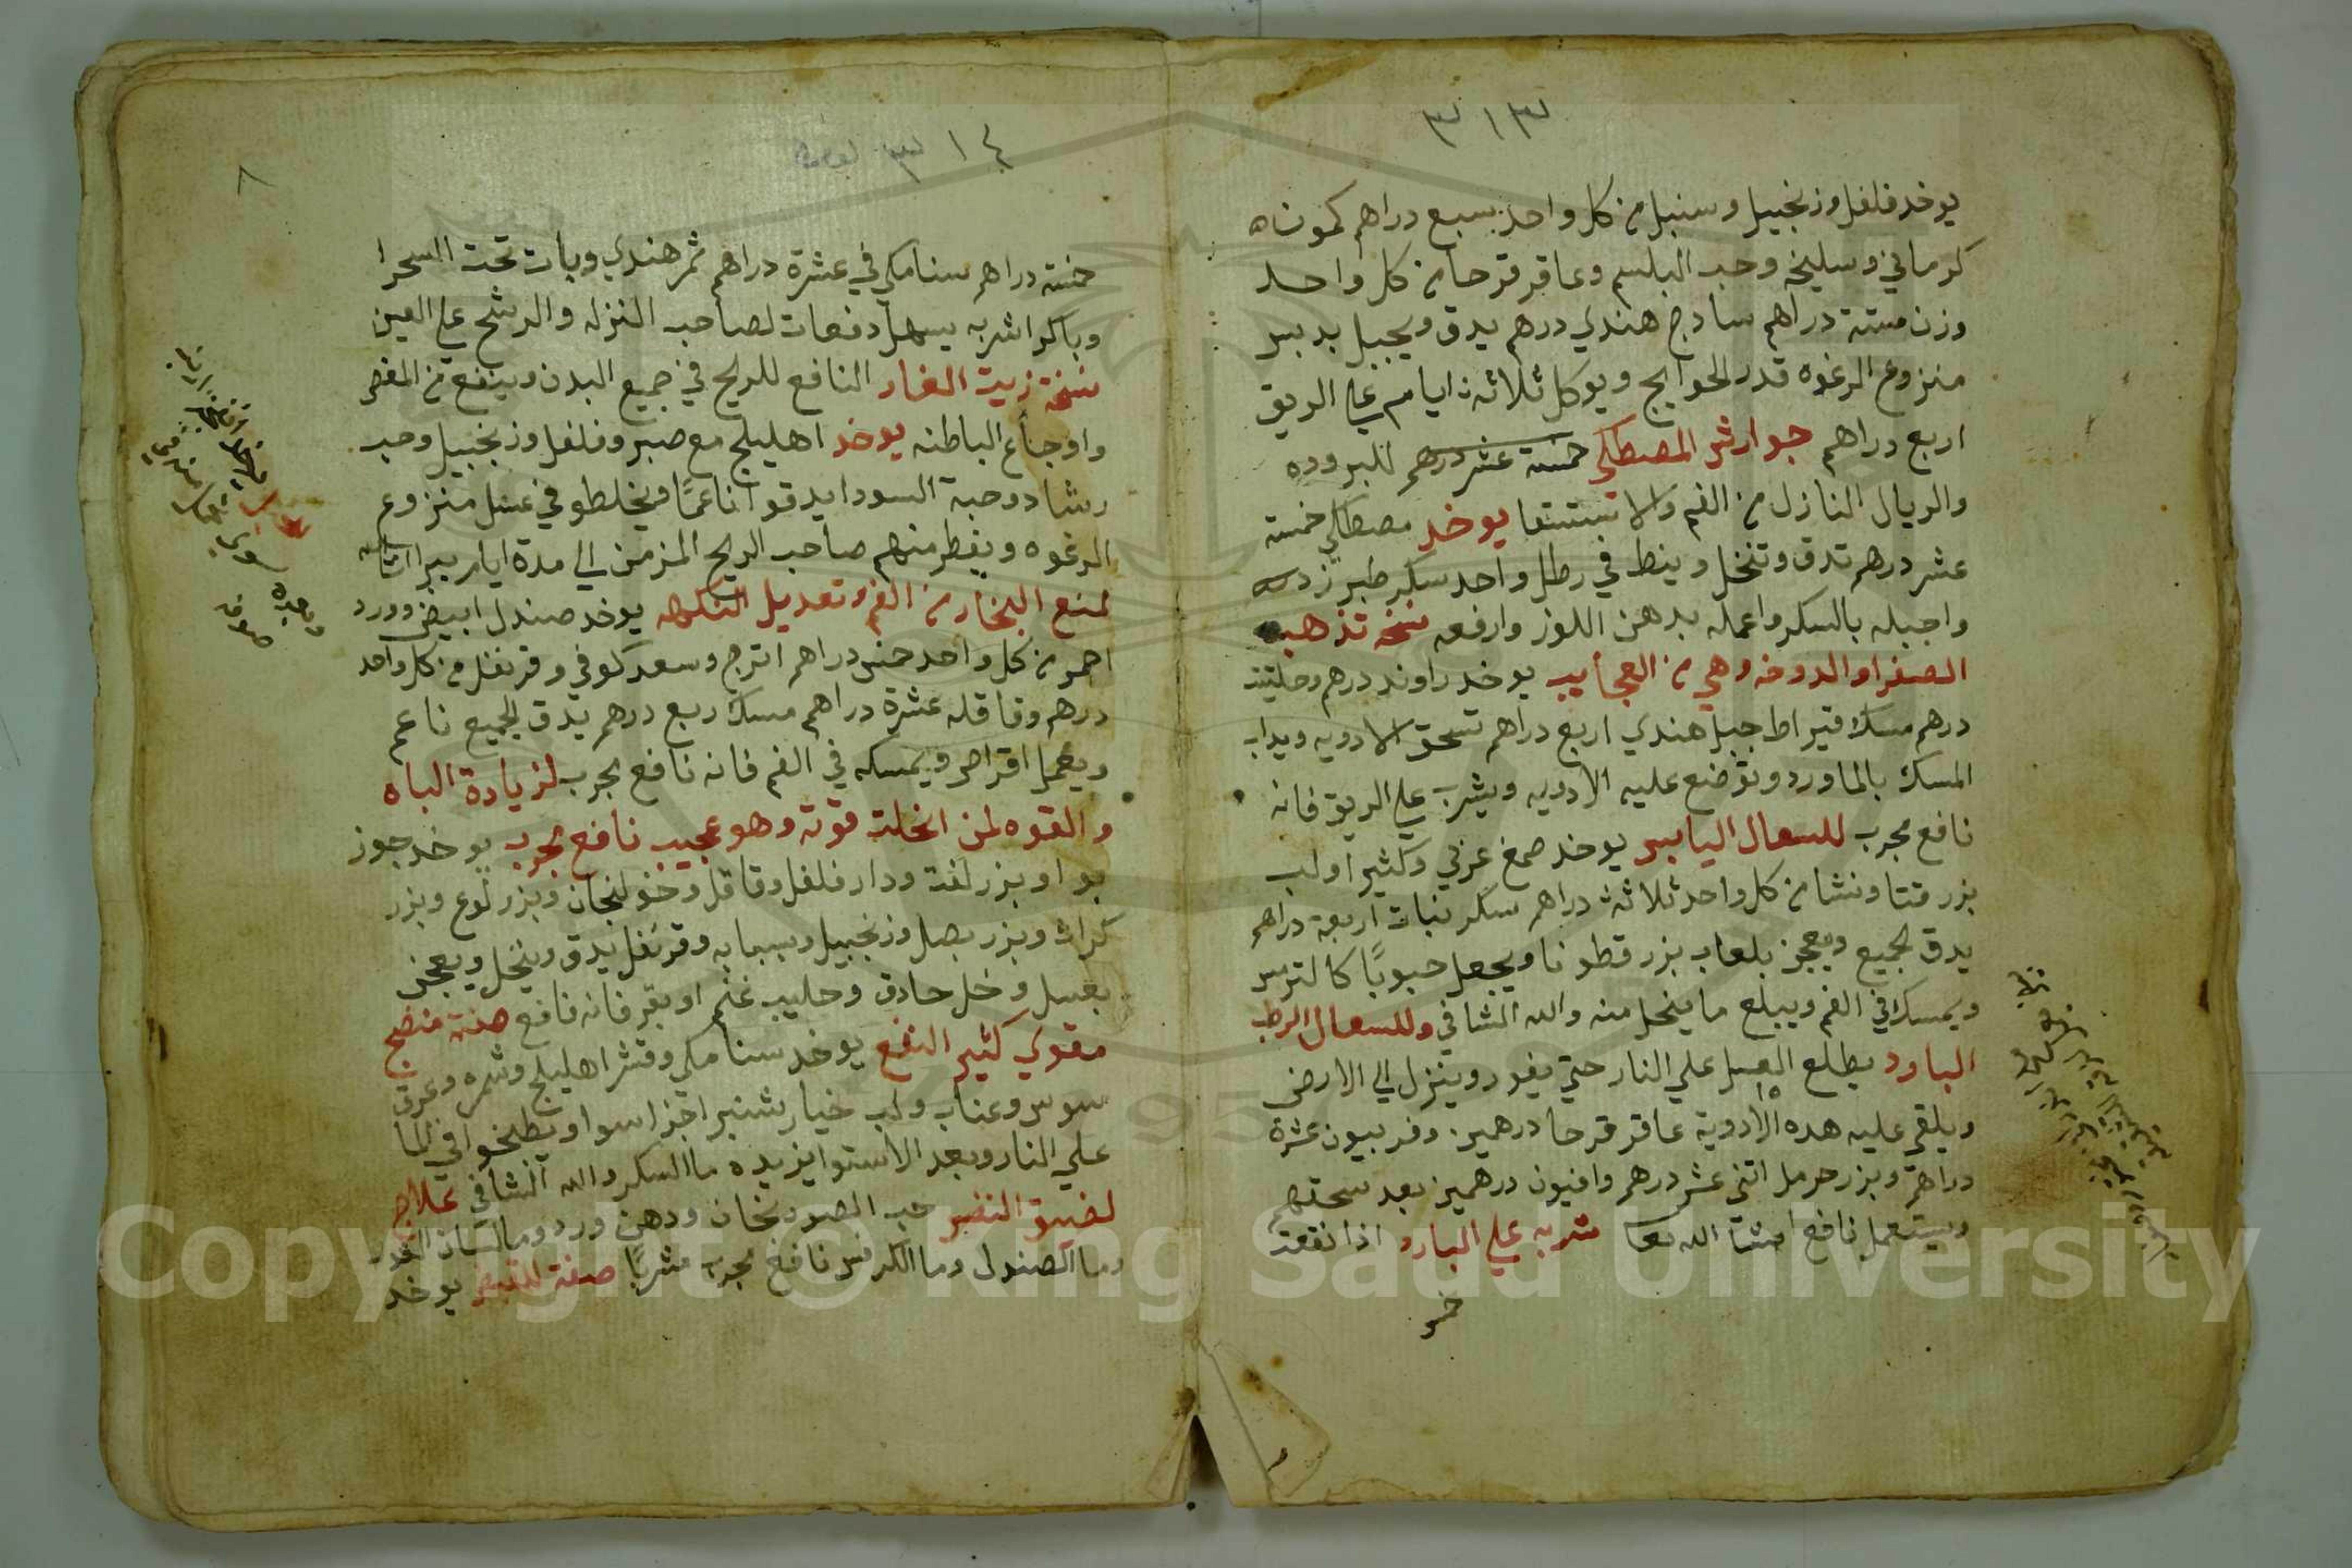 ٣١٣
يوخد فلفل وزنجبيل وسنبل من كل واحد سبع دراهم كمون
كرماني وسليخه وحب البلسم وعاقر قرحا من كل واحد
وزن ستة دراهم سادج هندي درهم يدق ويجبل بدبس
منزوع الرغوه قدر الحوايج ويوكل ثلاثة ايام على الريق
اربع دراهم جوارش المصطكي خمسة عشر درهم للبروده
والريال النازل من الفم والاستسقا يوخد مصطكي خمسة
عشر درهم تدق وتنخل وينط في رطل واحد سكر طبرزد
واجبله بالسكر واعمله بدهن اللوز وارفعه نسخه تذهب
الصفرا والدوخه وهي من العجايب يوخد راوند درهم وحلتيت
درهم مسك قيراط جبل هندي اربع دراهم تسحق الادويه ويداب
المسك بالماورد وتوضع عليه الادويه ويشرب على الريق فانه
نافع مجرب للسعال اليابس يوخد صمغ عربي وكثيرا ولب
بزر قتا ونشا من كل واحد ثلاثة دراهم سكر نبات اربعة دراهم
يدق الجميع ويعجن بلعاب بزر قطونا ويجعل حبوبًا كالترمس
ويمسك في الفم ويبلع ما ينحل منه والله الشافي وللسعال الرطب
البارد يطلع العسل علي النار حتي يفور وينزل الى الارض
ويلقي عليه هده الادوية عاقر قرحا درهمين وفربيون عشرة
دراهم وبزر حرمل اتني عشر درهم وافيون درهمين بعد سحقهم
ويستعمل نافع انشا الله تعا شربه علي البارد اذا نقعت
خمر
٣١٤
٨
خمسة دراهم سنامكي في عشرة دراهم ثمر هندي وبات تحت السحرا
وباكر اشربه يسهل دفعات لصاحب النزله والرشح على العين
نسخة زيت الغار النافع للريح في جميع البدن وينفع من المغص
واوجاع الباطنه يوخد اهليلج مع صبر وفلفل وزنجبيل وحب
رشاد وحبة السودا يدقوا ناعمًا ويخلطو في عسل منزوع
الرغوه ويفطر منهم صاحب الريح المزمن الى مدة ايام يبرا
لمنع البخار من الفم وتعديل النكهه يوخد صندل ابيض وورد
احمر من كل واحد خمس دراهم اترج وسعد كوفي وقرنفل من كل واحد
درهم وقاقله عشرة دراهم مسك ربع درهم يدق الجميع ناعم
ويعمل اقراص ويمسكه في الفم فانه نافع مجرب لزيادة الباه
والقوه لمن انحلت قوته وهو عجيب نافع مجرب يوخد جوز
بوا وبزر لفت ودار فلفل وقاقل وخولنجان وبزر لوع وبزر
كرات وبزر بصل وزنجبيل وبسبابه وقرنفل يدق وينخل ويعجن
بعسل وخل حادق وحليب غنم او بقر فانه نافع صفة منضج
مقوي كثير النفع يوخد سنامكي وقشر اهليلج وشمره وعرق
سوس وعناب ولب خيار شنبر اجزا سوا ويطبخوا في الما
علي النار وبعد الاستوا يزيده ما السكر والله الشافي علاج
لضيق النفس حب الصور نخان ودهن ورد وما لسان التور
وما الصندل وما الكرفس نافع مجرب شربًا صفة للقبض يوخد